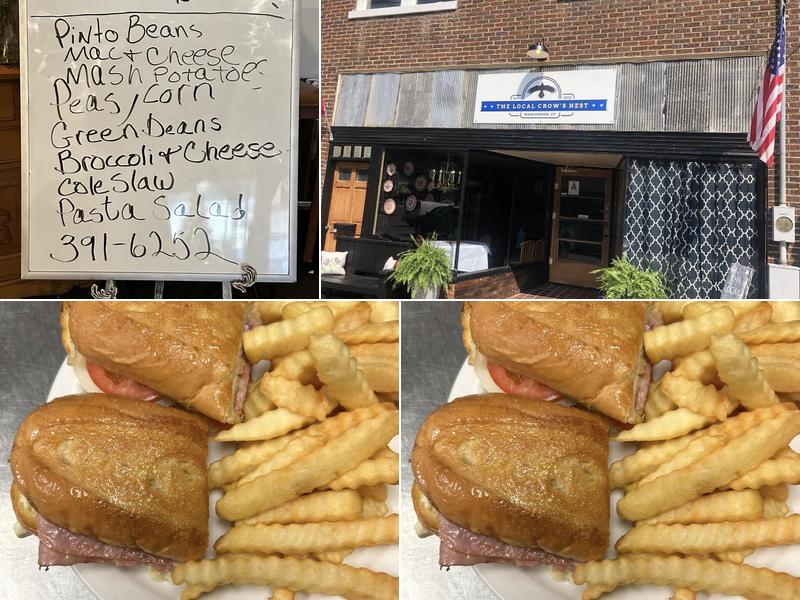 Pinto Beans
Mac + Cheese
Mash Potatoes
Peas/Corn
Green Beans
Broccoli + Cheese
Cole Slaw
Pasta Salad
391-6252
THE LOCAL CROW'S NEST
MANCHESTER, KY
A